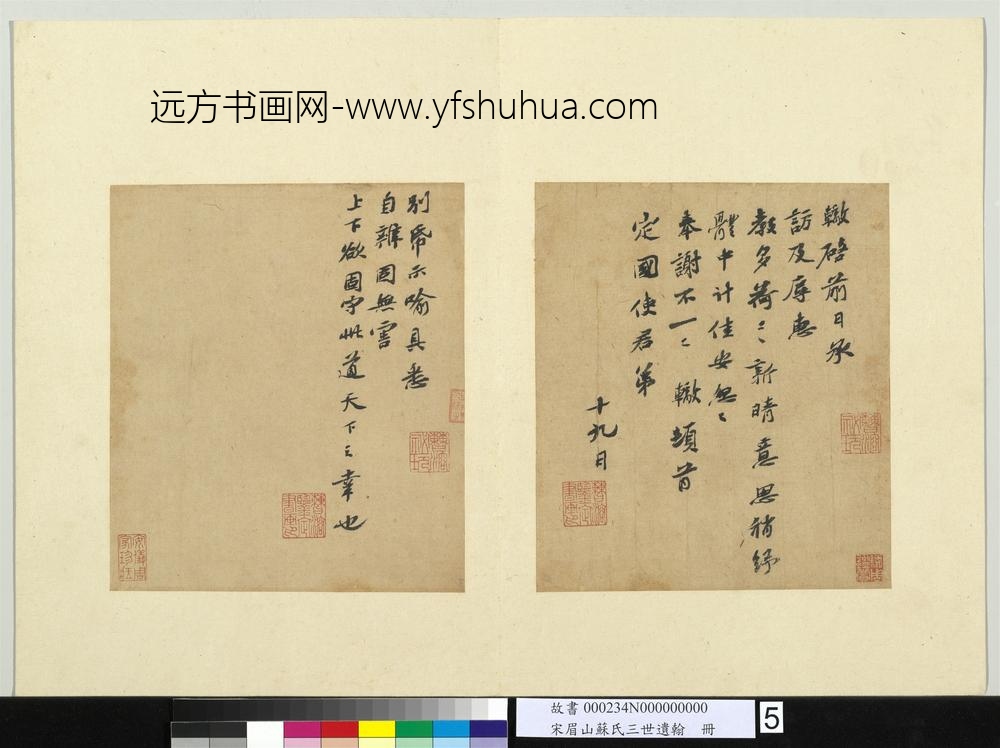 远方书画网-www.yfshuhua.com
轍啓前日承
訪及辱惠
教多荷〻新晴意思稍紓
體中計佳安怱〻
奉謝不一〻 轍頓首
定國使君弟
十九日
別帋示喻具悉
自辨固無害
上下欲固守此道天下之幸也
故書 000234N000000000
宋眉山蘇氏三世遺翰 冊
5